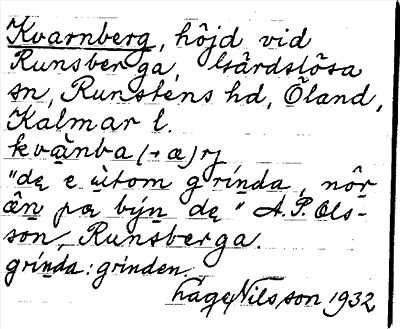 Kvarnberg, höjd vid
Runsberga, Gårdslösa
sn, Runstens hd, Öland,
Kalmar l.
kvànba(-æ)rj
"dę e ùtom grinda, nôr
ân pœ býn dę" A.P. Ols-
son, Runsberga.
grinda: grinden.
Lage Nilsson 1932